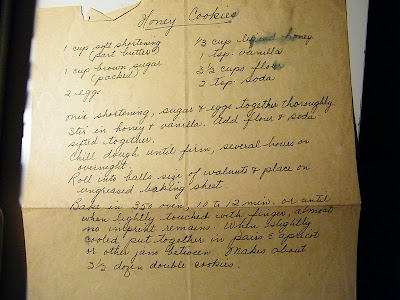 Honey Cookies
1 cup soft shortening
(part butter)
1 cup brown sugar
(packed)
2 eggs
1/3 cup liquid honey
1 tsp. vanilla
3 1/2 cups flour
2 tsp. soda
Mix shortening, sugar & eggs together thoroughly.
Stir in honey & vanilla. Add flour & soda
sifted together.
Chill dough until firm, several hours or
overnight.
Roll into balls size of walnuts & place on
ungreased baking sheet.
Bake in 350 oven, 10 to 12 min. or until
when lightly touched with finger, almost
no imprint remains. When slightly
cooled, put together in pairs & apricot
or other jam between. Makes about
3 1/2 dozen double cookies.